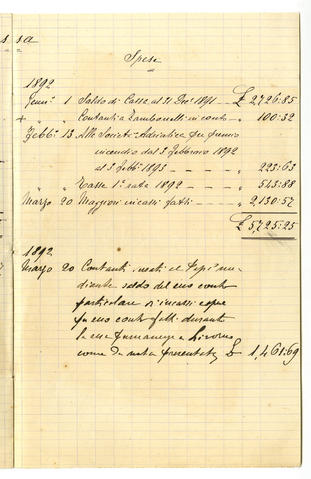 ssa
Spese
1892
Genn° 1 Saldo di Cassa al 31 Dec° 1891 £ 2726:85
+ „ „ Contanti a Zamboncelli in conto „ 100:32
Febb° 13 Alla Società Adriatica per premio
incendio dal 3 Febbraro 1892
al 3 febb° 1893 „ 223:63
„ „ Tasse 1ª rata 1892 „ 543:88
Marzo 20 Maggiori incassi fatti „ 2,130:57
£ 5,725:25
1892
Marzo 20 Contanti al
diente saldo del suo conto
particolare incassi
suo conto fatti durante
la sua permanenza a Livorno
come da nota presentata £ 1,461:69